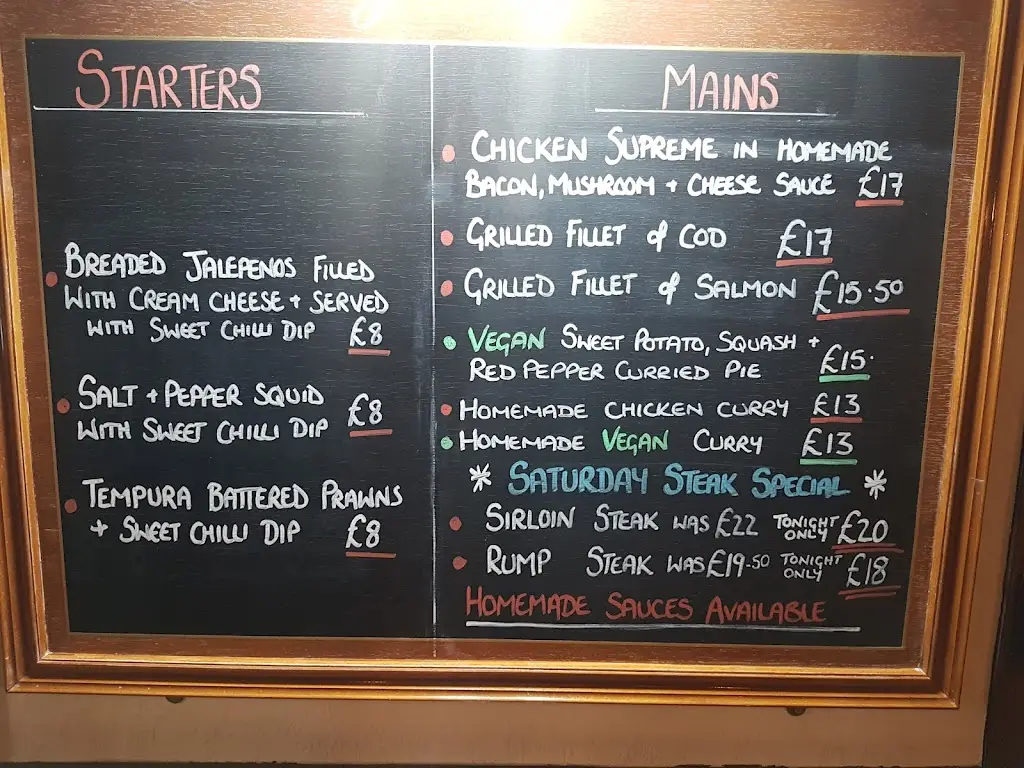 STARTERS
BREADED JALEPENOS FILLED
WITH CREAM CHEESE + SERVED
WITH SWEET CHILLI DIP £8
SALT + PEPPER SQUID
WITH SWEET CHILLI DIP £8
TEMPURA BATTERED PRAWNS
+ SWEET CHILLI DIP £8
MAINS
CHICKEN SUPREME IN HOMEMADE
BACON, MUSHROOM + CHEESE SAUCE £17
GRILLED FILLET of COD £17
GRILLED FILLET of SALMON £15.50
VEGAN SWEET POTATO, SQUASH +
RED PEPPER CURRIED PIE £15.
HOMEMADE CHICKEN CURRY £13
HOMEMADE VEGAN CURRY £13
* SATURDAY STEAK SPECIAL *
SIRLOIN STEAK WAS £22 TONIGHT ONLY £20
RUMP STEAK WAS £19.50 TONIGHT ONLY £18
HOMEMADE SAUCES AVAILABLE